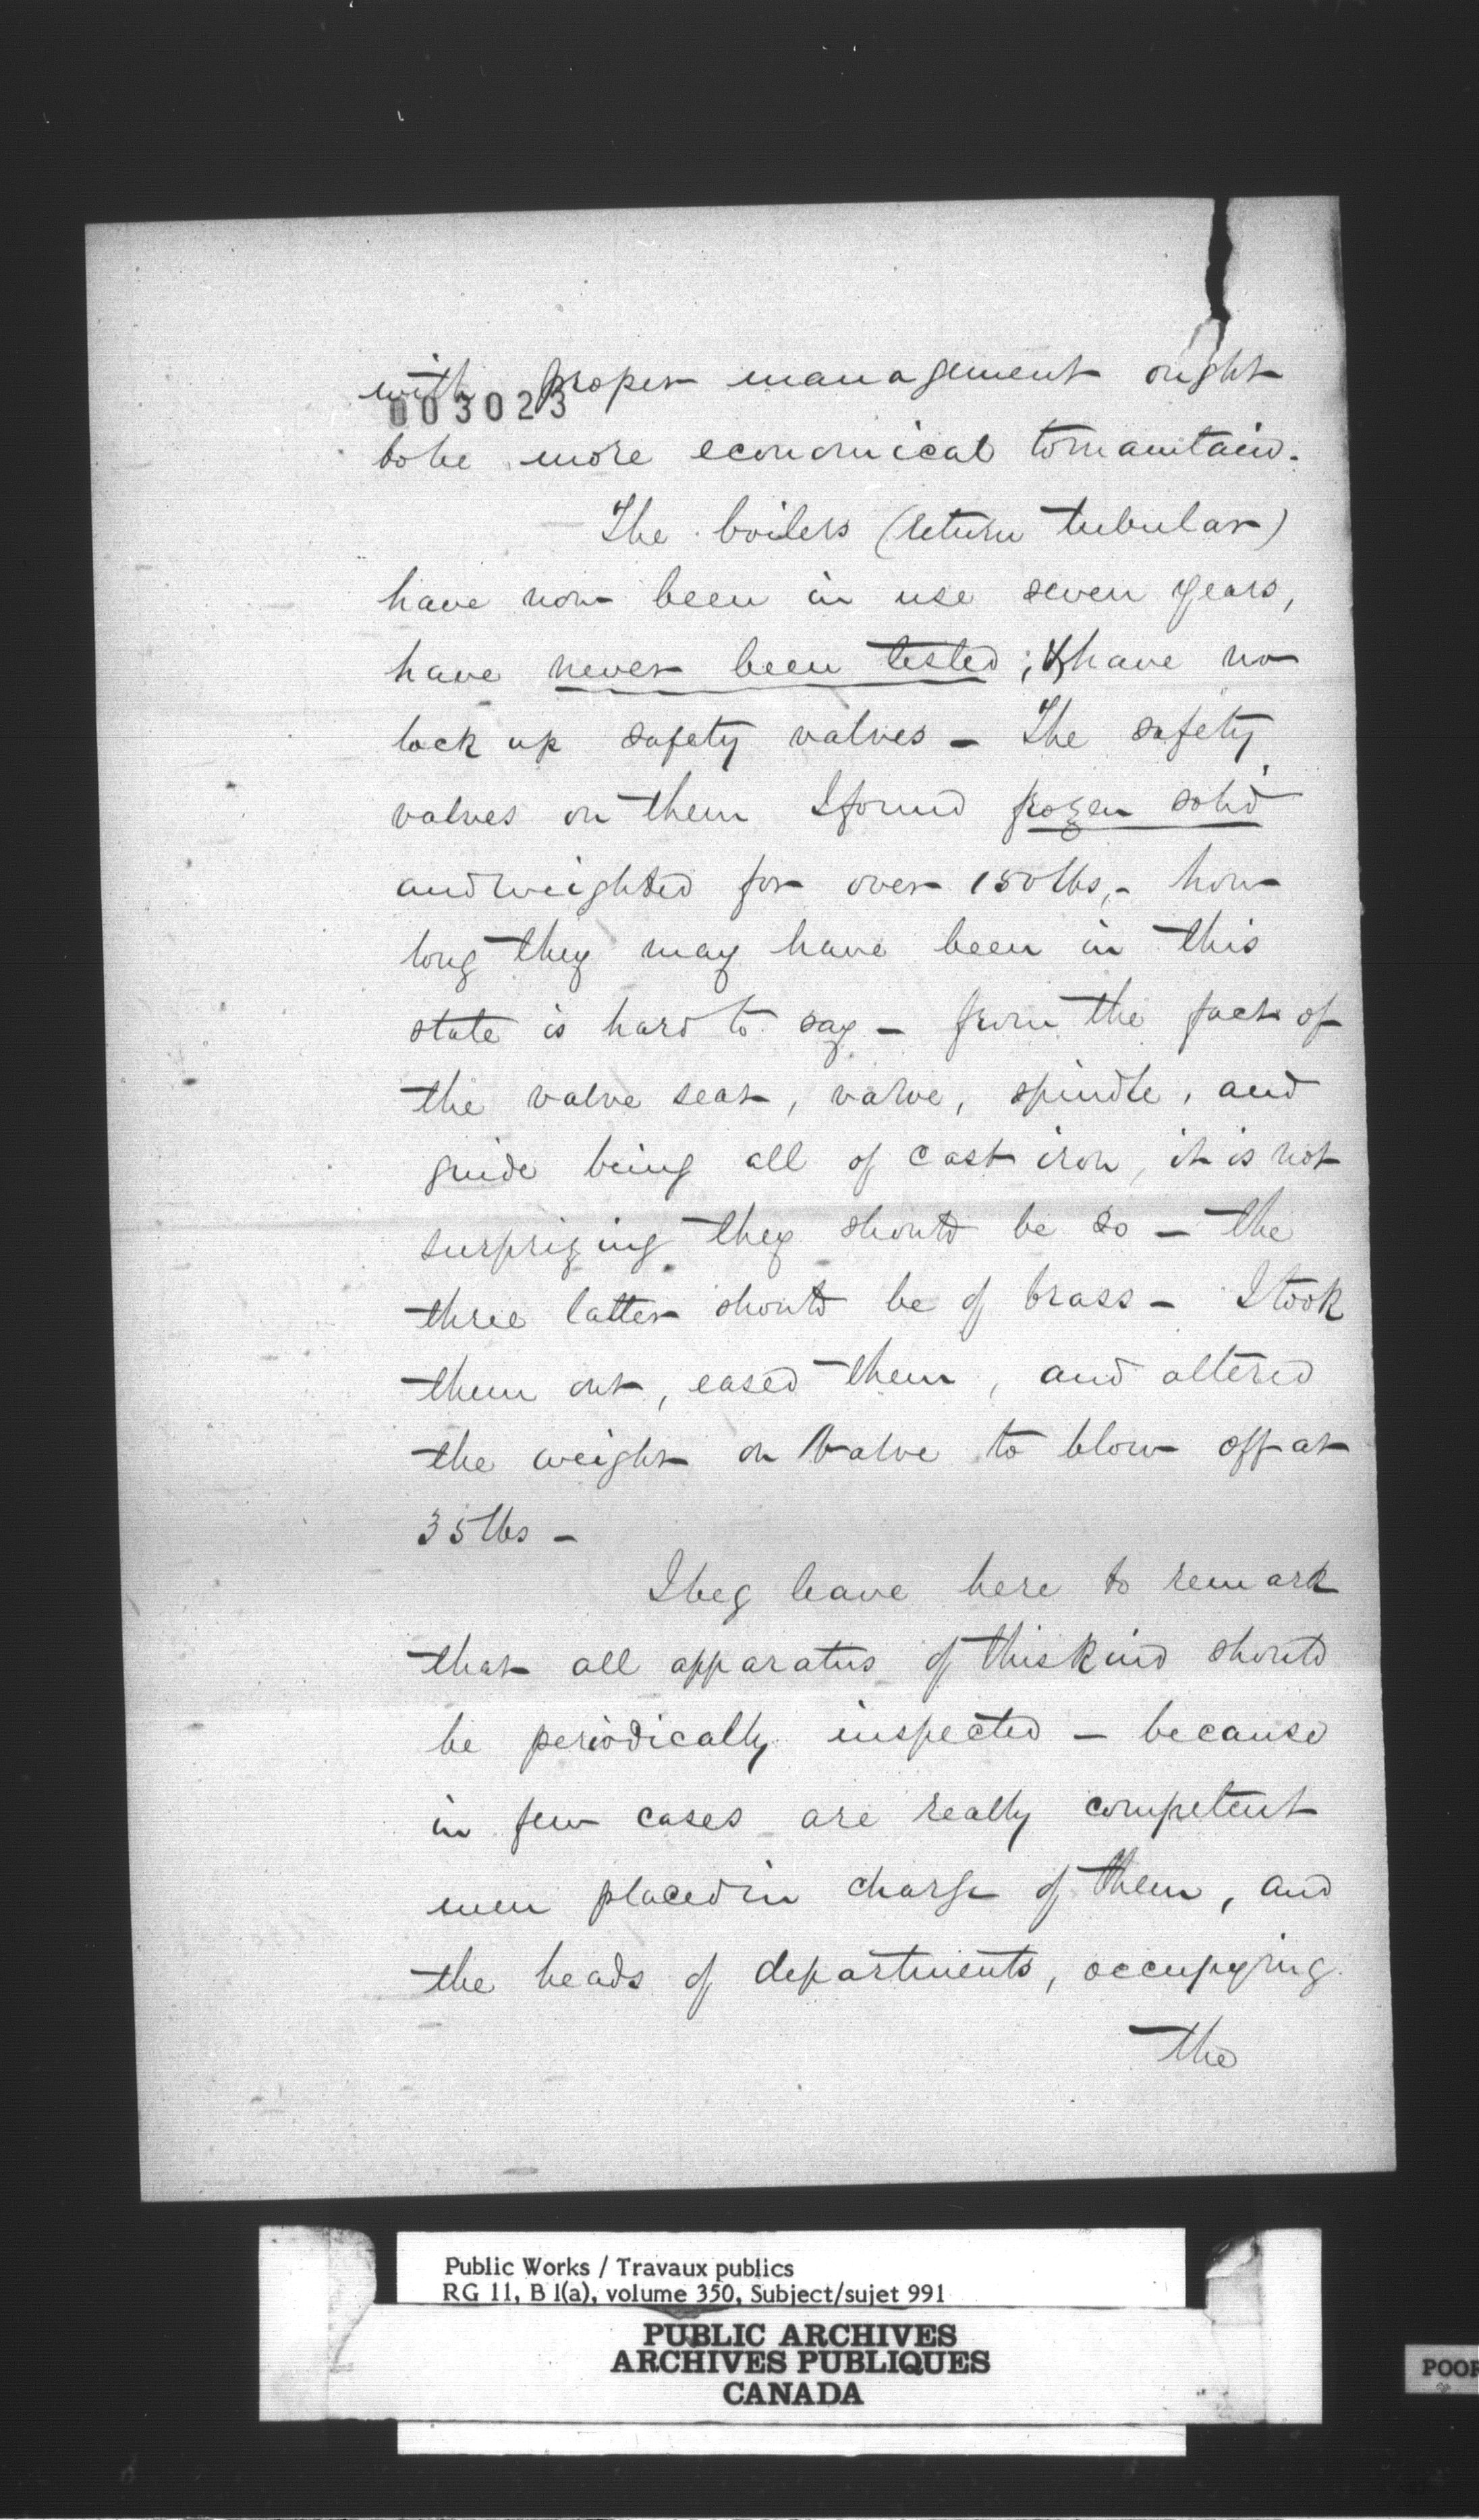 with proper management ought
003023
to be more economical to maintain.
The boilers (return tubular)
have now been in use seven years,
have never been tested; & have no
lock up safety valves – The safety
valves on them I found frozen solid
and weighted for over 150 lbs, – how
long they may have been in this
state is hard to say – from the fact of
the valve seat, valve, spindle, and
guide being all of cast iron, it is not
surprizing they should be so – the
three latter should be of brass – I took
them out, eased them, and altered
the weight on valve to blow off at
35 lbs –
I beg leave here to remark
that all apparatus of this kind should
be periodically inspected – because
in few cases are really competent
men placed in charge of them, and
the heads of departments, occupying
the
Public Works / Travaux publics
RG 11, B 1(a), volume 350, Subject/sujet 991
PUBLIC ARCHIVES
ARCHIVES PUBLIQUES
CANADA
POOR